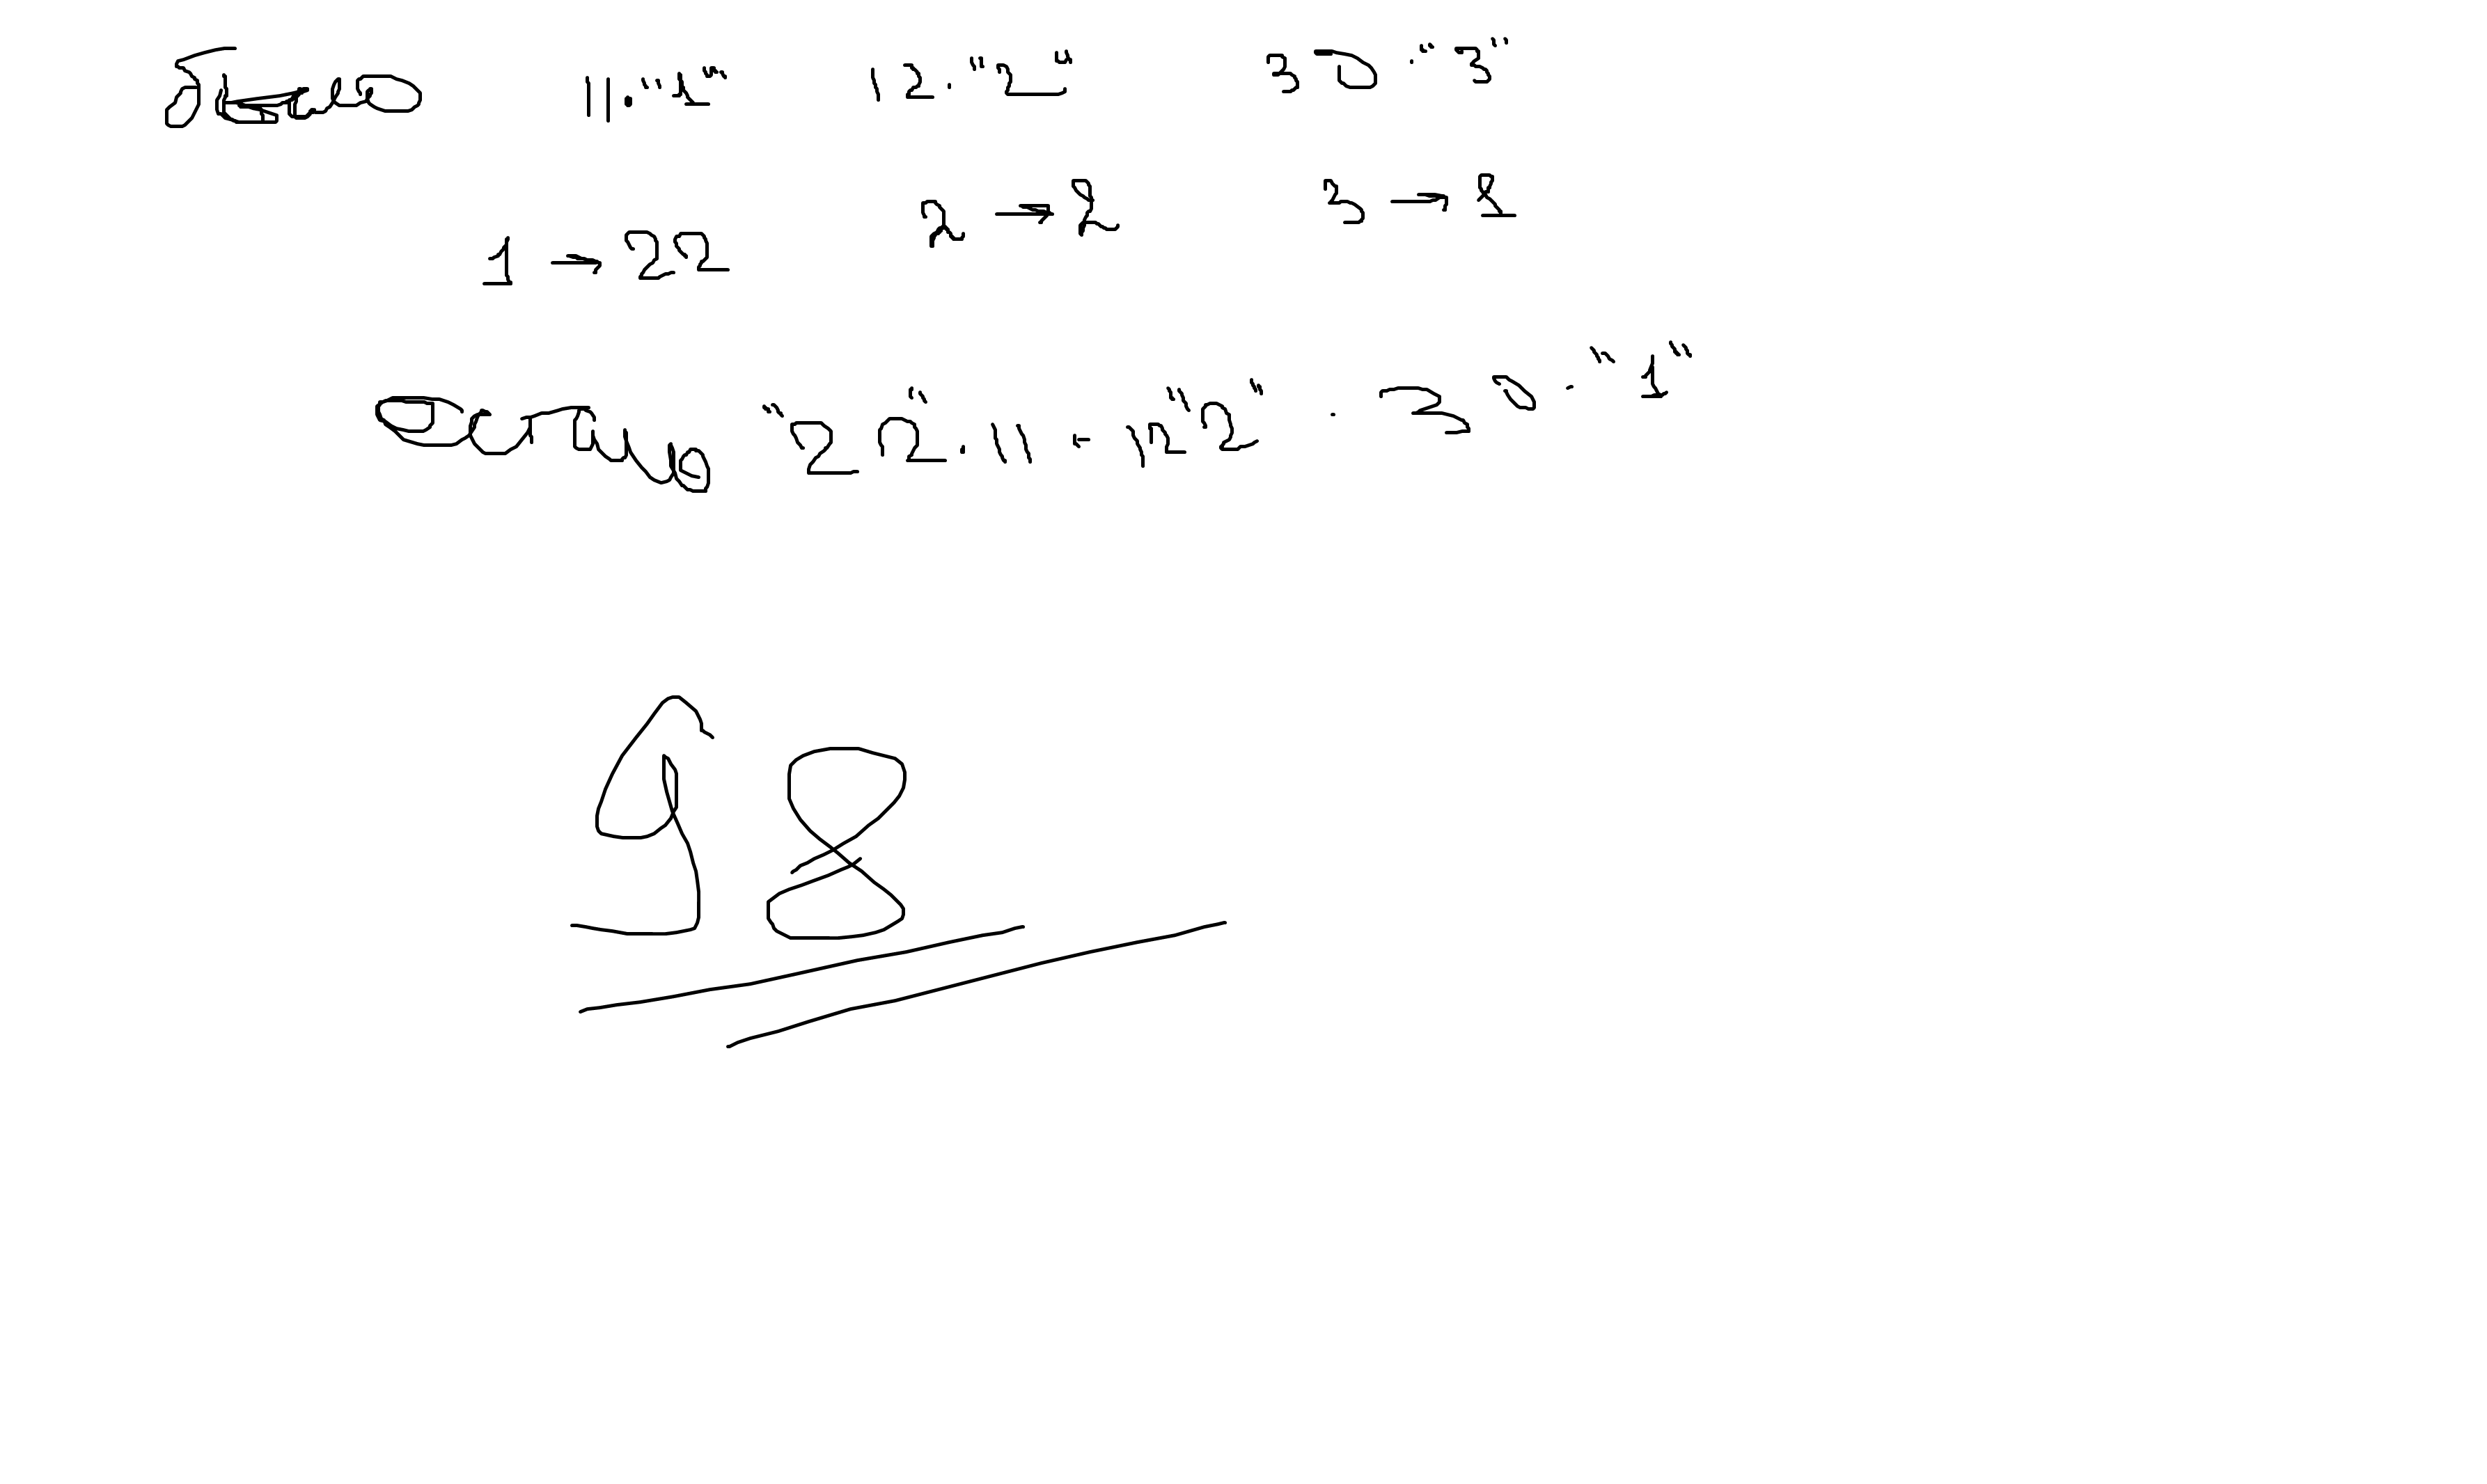 Было 11·"1" 12·"2" 30·"3"
1→22 2→2 3→1
Осталось "22"·11 - 12"2" · 30·"1"
98